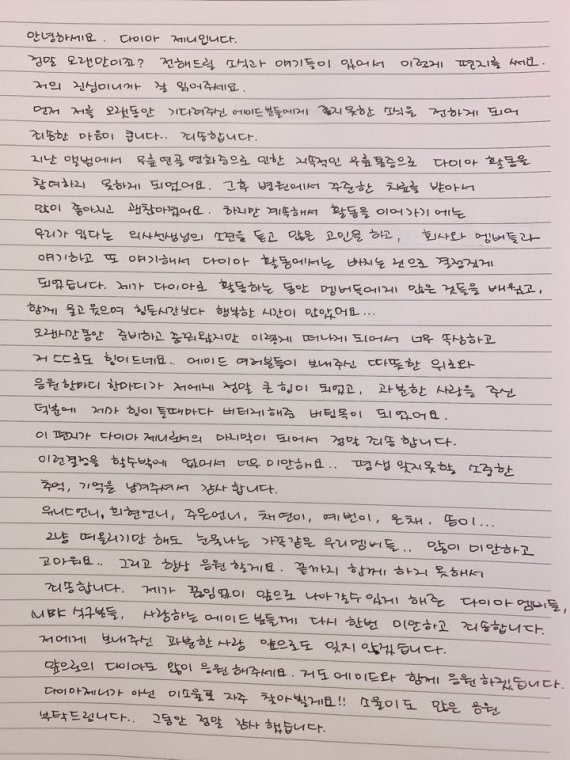 안녕하세요. 다이아 제니입니다.
정말 오랜만이죠? 전해드릴 소식과 얘기들이 있어서 이렇게 편지를 써요.
저의 진심이니까 잘 읽어주세요.
먼저 저를 오랫동안 기다려주신 에이드분들에게 좋지못한 소식을 전하게 되어
죄송한 마음이 큽니다.. 죄송합니다.
지난 앨범에서 무릎 연골 연화증으로 인한 지속적인 무릎통증으로 다이아 활동을
참여하지 못하게 되었어요. 그후 병원에서 꾸준한 치료를 받아서
많이 좋아지고 괜찮아졌어요. 하지만 계속해서 활동을 이어가기에는
무리가 있다는 의사선생님의 소견을 듣고 많은 고민을 하고, 회사와 멤버들과
얘기하고 또 얘기해서 다이아 활동에서는 빠지는 것으로 결정짓게
되었습니다. 제가 다이아로 활동하는 동안 멤버들에게 많은 것들을 배웠고,
함께 울고 웃으며 힘든시간보다 행복한 시간이 많았어요...
오랜시간동안 준비하고 꿈꿔왔지만 이렇게 떠나게 되어서 너무 속상하고
저 스스로도 힘이드네요.. 에이드 여러분들이 보내주신 따뜻한 위로와
응원 한마디 한마디가 저에게 정말 큰 힘이 되었고, 과분한 사랑을 주신
덕분에 제가 힘이 들때마다 버티게 해준 버팀목이 되었어요.
이 편지가 다이아 제니로서의 마지막이 되어서 정말 죄송합니다.
이런결정을 할수밖에 없어서 너무 미안해요.. 평생 잊지못할 소중한
추억, 기억을 남겨주셔서 감사합니다.
유니스언니, 희현언니, 주은언니, 채연이, 예빈이, 은채, 똥이...
그냥 떠올리기만 해도 눈물나는 가족같은 우리멤버들.. 많이 미안하고
고마워요.. 그리고 항상 응원할게요. 끝까지 함께 하지 못해서
죄송합니다. 제가 끊임없이 앞으로 나아갈수있게 해준 다이아 멤버들,
MBK 식구분들, 사랑하는 에이드 분들께 다시 한번 미안하고 죄송합니다.
저에게 보내주신 과분한 사랑 앞으로도 잊지 않겠습니다.
앞으로의 다이아도 많이 응원해주세요. 저도 에이드와 함께 응원하겠습니다.
다이아제니가 아닌 이소율로 자주 찾아뵐게요!! 소율이도 많은 응원
부탁드립니다.. 그동안 정말 감사했습니다.